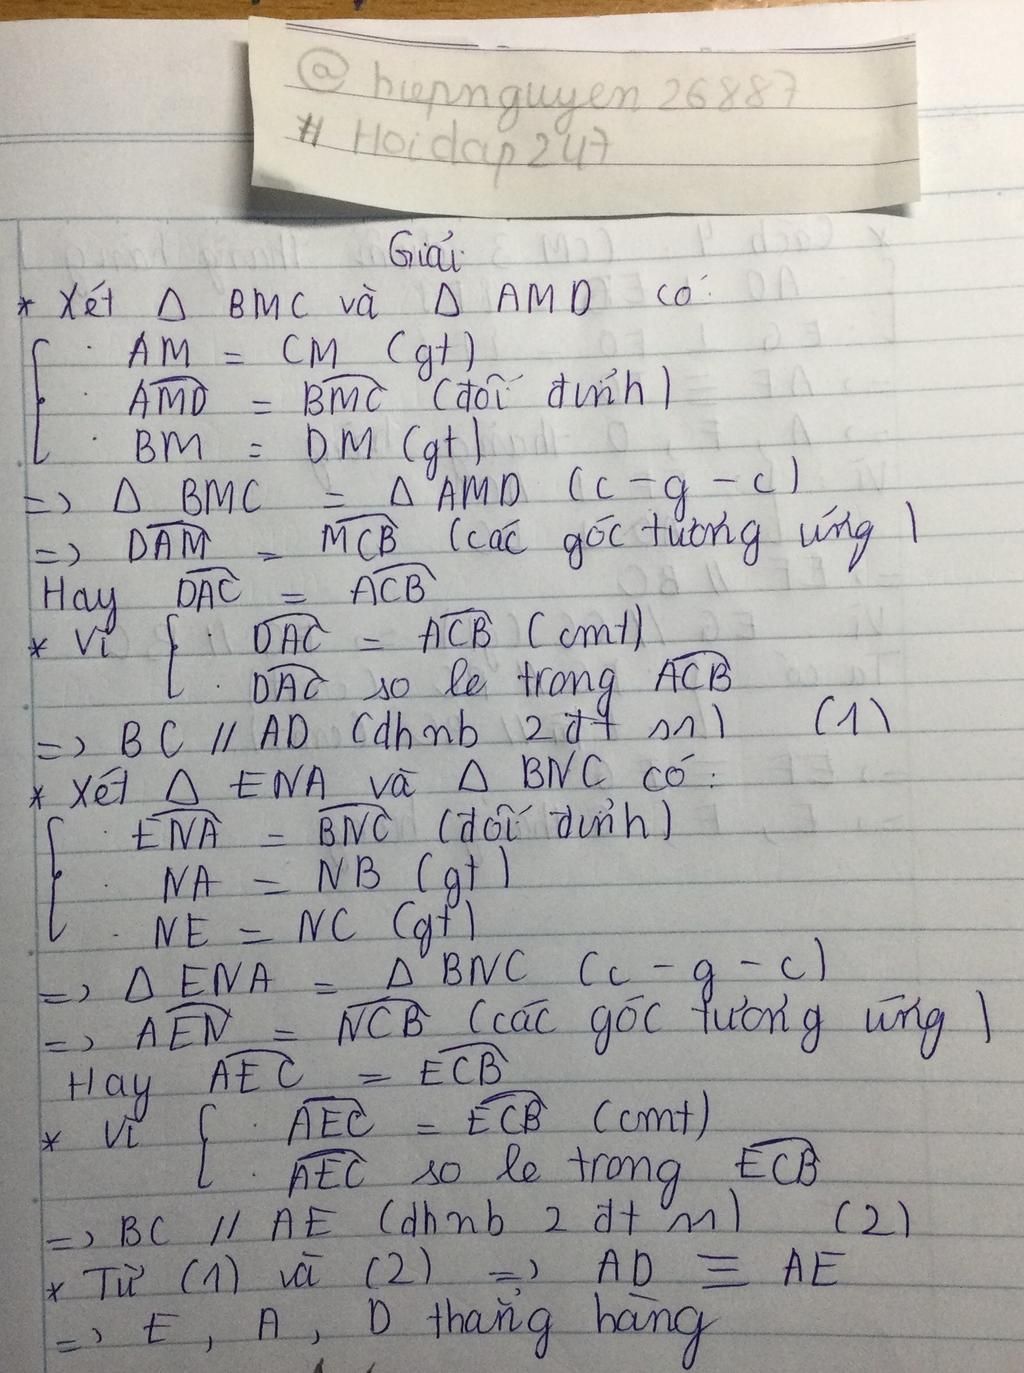 @ hiepnguyen 26887
# Hoidap247
Giải
* Xét Δ BMC và Δ AMD có:
· AM = CM (gt)
· AMD = BMC (đối đỉnh)
· BM = DM (gt)
=> Δ BMC = Δ AMD (c-g-c)
=> DAM = MCB (các góc tương ứng)
Hay DAC = ACB
* Vì { · DAC = ACB (cmt)
· DAC so le trong ACB
=> BC // AD (dhnb 2 đt //) (1)
* Xét Δ ENA và Δ BNC có:
· ENA = BNC (đối đỉnh)
· NA = NB (gt)
· NE = NC (gt)
=> Δ ENA = Δ BNC (c-g-c)
=> AEN = NCB (các góc tương ứng)
Hay AEC = ECB
* Vì { · AEC = ECB (cmt)
· AEC so le trong ECB
=> BC // AE (dhnb 2 đt //) (2)
* Từ (1) và (2) => AD ≡ AE
=> E, A, D thẳng hàng